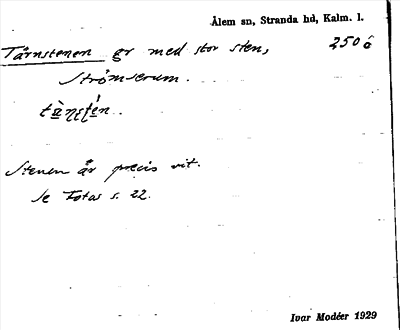 Ålem sn, Stranda hd, Kalm. l.
Tärnstenen gr med stor sten, 250 ö
Strömserum.
Stenen är precis vit.
Se Fotas s. 22.
Ivar Modéer 1929